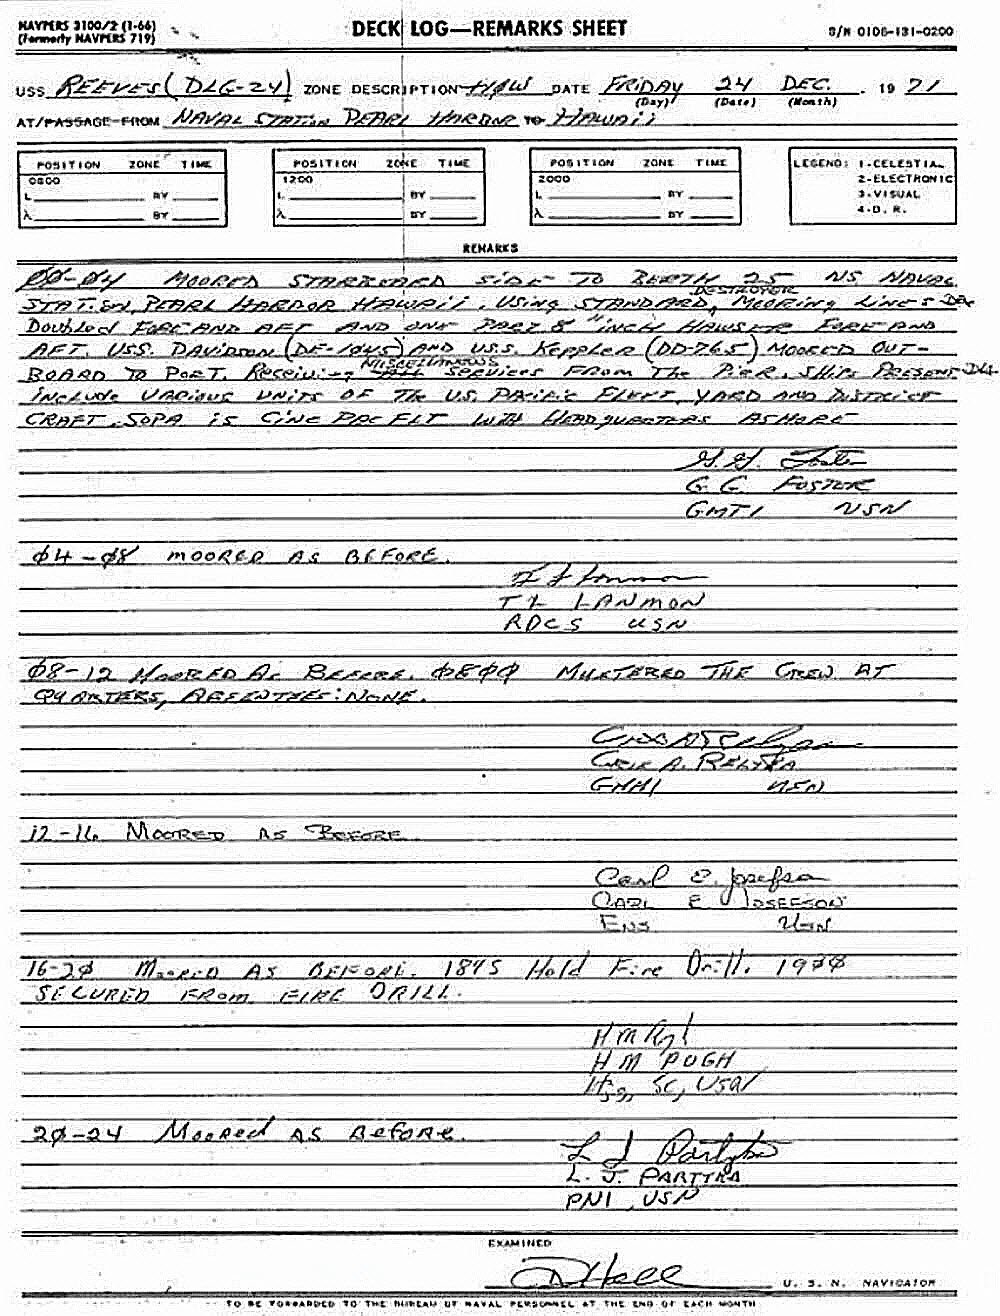 NAVPERS 3100/2 (1-66)
(Formerly NAVPERS 719)
DECK LOG—REMARKS SHEET
S/N 0106-131-0200
USS REEVES (DLG-24) ZONE DESCRIPTION HAW DATE FRIDAY 24 DEC. 19 71
(Day) (Date) (Month)
AT/PASSAGE FROM NAVAL STATION PEARL HARBOR TO HAWAII
POSITION ZONE TIME
0800
L BY
λ BY
POSITION ZONE TIME
1200
L BY
λ BY
POSITION ZONE TIME
2000
L BY
λ BY
LEGEND: 1-CELESTIAL
2-ELECTRONIC
3-VISUAL
4-D. R.
REMARKS
ØØ-Ø4 MOORED STARBOARD SIDE TO BERTH 25 NS NAVAL
STATION, PEARL HARBOR HAWAII, USING STANDARD, DESTROYER MOORING LINES
Doubled FORE AND AFT AND ONE PART 8 "INCH HAWSER FORE AND
AFT. USS. DAVIDSON (DE-1045) AND U.S.S. KEPPLER (DD-765) MOORED OUT-
BOARD TO PORT. Receiving MISCELLANEOUS SERVICES FROM THE PIER. SHIPS PRESENT
INCLUDE VARIOUS UNITS OF THE U.S. PACIFIC FLEET, YARD AND DISTRICT
CRAFT. SOPA IS CINC PAC FLT WITH HEADQUARTERS ASHORE
G. G. Foster
G. G. FOSTER
GMT1 USN
Ø4-Ø8 MOORED AS BEFORE.
T L Lanmon
T L LANMON
RDCS USN
Ø8-12 MOORED AS BEFORE. Ø8ØØ MUSTERED THE CREW AT
QUARTERS, ABSENTEES: NONE.
A. RELYEA
USN
12-16 MOORED AS BEFORE
Carl E. Josefson
CARL E JOSEFSON
ENS USN
16-2Ø MOORED AS BEFORE. 1845 Hold Fire Drill. 19ØØ
SECURED FROM FIRE DRILL.
H M Pugh
H M PUGH
ltjg, SC, USN
2Ø-24 Moored AS BEFORE.
L J Partyka
L. J. PARTYKA
PN1 USN
EXAMINED
D Hall
U. S. N. NAVIGATOR
TO BE FORWARDED TO THE BUREAU OF NAVAL PERSONNEL AT THE END OF EACH MONTH